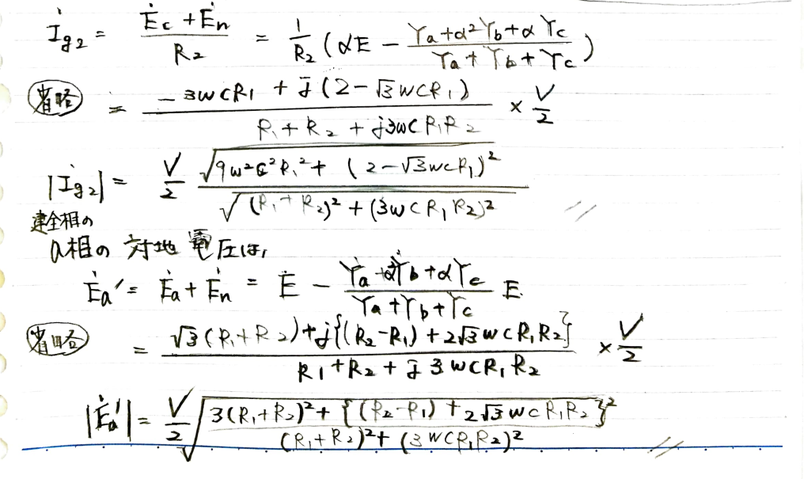 İg₂ = (Ėc + Ėn) / R₂ = 1/R₂ (αE − (Ẏa + α²Ẏb + αẎc) / (Ẏa + Ẏb + Ẏc))
省略 = (−3ωCR₁ + j(2 − √3ωCR₁)) / (R₁ + R₂ + j3ωCR₁R₂) × V/2
|İg₂| = V/2 √(9ω²C²R₁² + (2 − √3ωCR₁)²) / √((R₁ + R₂)² + (3ωCR₁R₂)²) //
健全相の
a相の対地電圧は、
Ėa′ = Ėa + Ėn = Ė − (Ẏa + α²Ẏb + αẎc) / (Ẏa + Ẏb + Ẏc) E
省略 = (√3(R₁ + R₂) + j{(R₂ − R₁) + 2√3ωCR₁R₂}) / (R₁ + R₂ + j3ωCR₁R₂) × V/2
|Ėa′| = V/2 √((3(R₁ + R₂)² + {(R₂ − R₁) + 2√3ωCR₁R₂}²) / ((R₁ + R₂)² + (3ωCR₁R₂)²)) //